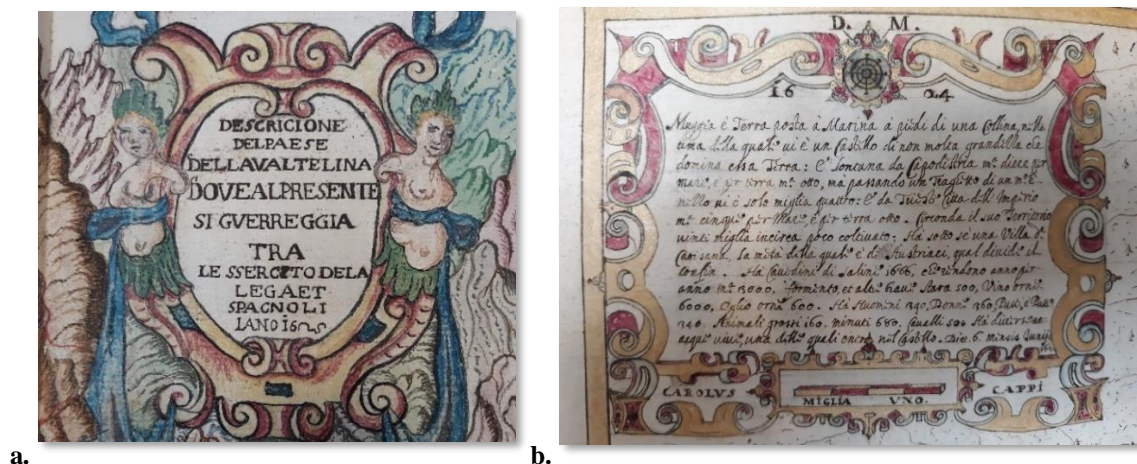 DESCRICIONE
DEL PAESE
DELLA VALTELINA
DOVE AL PRESENTE
SI GUERREGGIA
TRA
LE SSERCETO DE LA
LEGA ET
SPAGNOLI
LANO 16
a.
D. M.
16 24
Muggia è Terra posta à Marina a piedi di una Collina, nella
cima della quale vi è un Castello di non molta grandezza che
domina essa Terra: È lontana da Capodistria m.ᵃ dieci per
mare, e per terra m.ᵃ otto, mà passando un Traghetto di un m.
vi è solo miglia quattro: È da Trieste Città dell'Imperio
m.ᵃ cinque per Mare, è per terra otto. Circonda il suo Territorio
vinti miglia incirca poco coltivato: Hà sotto sè una Villa
la mità della quale è d'Austriaci, qual divide il
Confin. Hà Cavedini di Saline 1666, che rendono anno per
anno m.ᵃ 3000, formento, et altre biave Stara 500, Vino orne
6000, Oglio orne 600. Hà Huomini 290, Donne 360, Putti e Putte
340. Animali grossi 160. minuti 680. Cavalli 50. Hà diverse
acque vive, una delle quali entra nel Castello. Die. 6. mensis Junij
CAROLVS
MIGLIA VNO.
CAPPI
b.